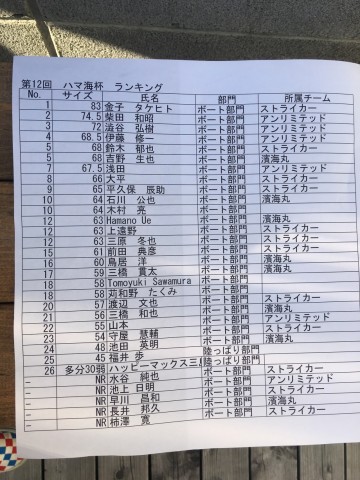 第12回 ハマ海杯 ランキング
No. サイズ 氏名 部門 所属チーム
1 83 金子 タケヒト ボート部門 ストライカー
2 74.5 柴田 和昭 ボート部門 アンリミテッド
3 72 澁谷 弘樹 ボート部門 アンリミテッド
4 68.5 伊藤 修一 ボート部門 アンリミテッド
5 68 鈴木 郁也 ボート部門 ストライカー
5 68 吉野 生也 ボート部門 濱海丸
7 67.5 浅田 ボート部門 アンリミテッド
8 66 大平 ボート部門 ストライカー
9 65 平久保 辰助 ボート部門 ストライカー
10 64 石川 公也 ボート部門 濱海丸
10 64 木村 亮 ボート部門
12 63 Hamano Ue ボート部門 濱海丸
12 63 上遠野 ボート部門 ストライカー
12 63 三原 冬也 ボート部門 ストライカー
15 61 前田 典彦 ボート部門 ストライカー
16 60 鳥居 洋 ボート部門 濱海丸
17 59 三橋 貫太 ボート部門 濱海丸
18 58 Tomoyuki Sawamura ボート部門
18 58 苅和野 たくみ ボート部門
20 57 渡辺 文也 ボート部門 ストライカー
21 56 三橋 和也 ボート部門 濱海丸
22 55 山本 ボート部門 アンリミテッド
23 54 守屋 慧輔 ボート部門 ストライカー
24 48 池田 英明 ボート部門 濱海丸
25 45 福井 歩 陸っぱり部門
26 多分30弱 ハッピーマックス三 陸っぱり部門
- NR 水谷 純也 ボート部門 ストライカー
- NR 池上 日明 ボート部門 アンリミテッド
- NR 早川 昌和 ボート部門 ストライカー
- NR 長井 邦久 ボート部門 濱海丸
- NR 柿澤 寛 ボート部門 ストライカー